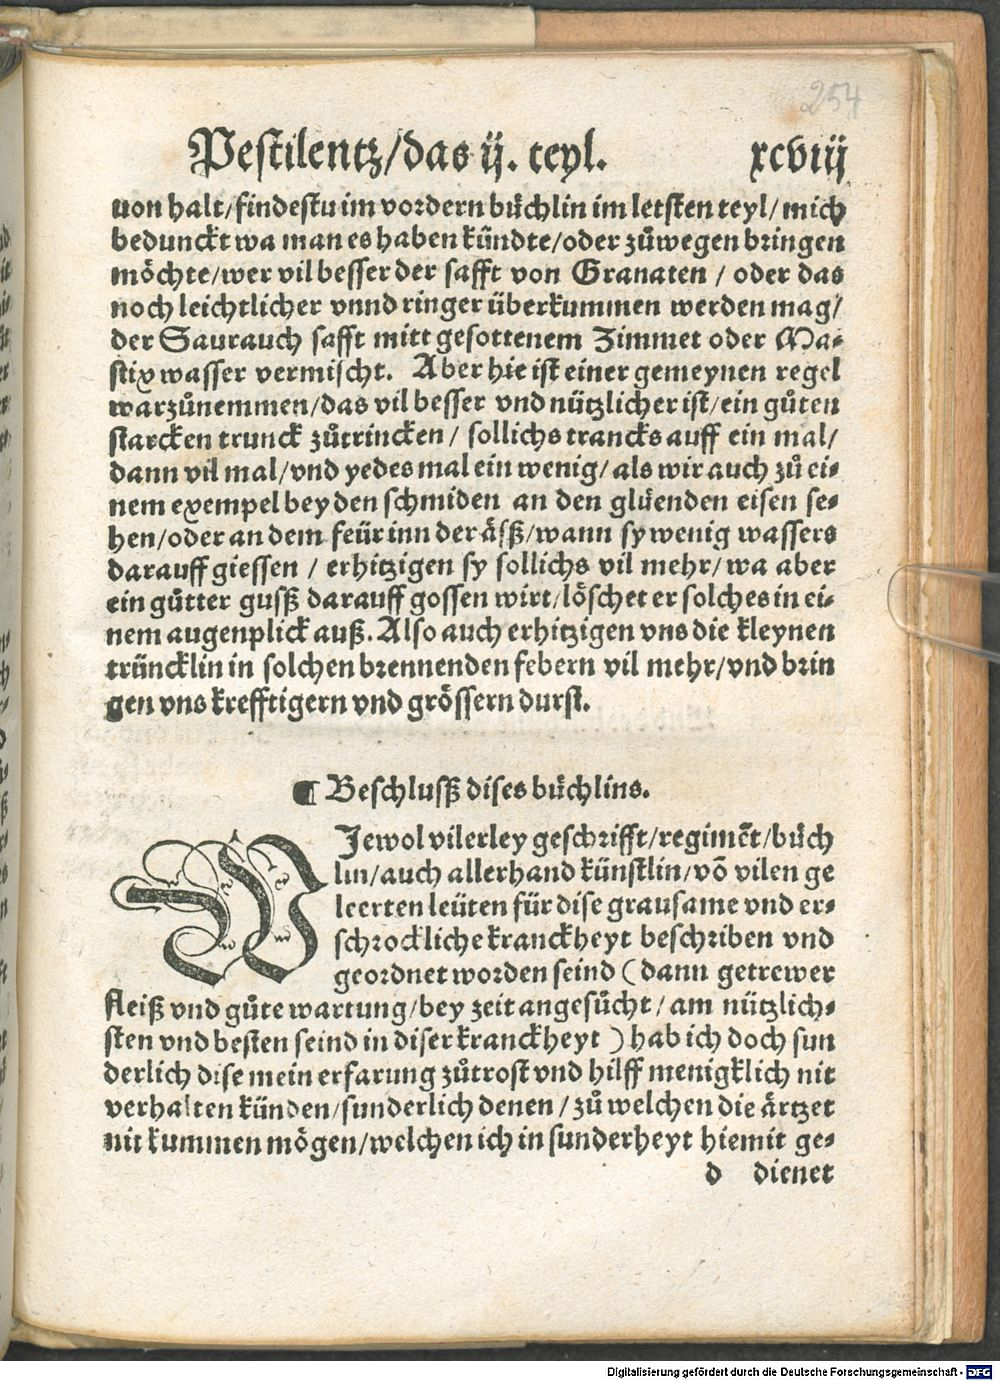 254
Pestilentz/das ij. teyl. xcviij
von halt/findestu im vordern büchlin im letsten teyl/mich
bedunckt wa man es haben kündte/oder zůwegen bringen
möchte/wer vil besser der safft von Granaten / oder das
noch leichtlicher vnnd ringer überkummen werden mag/
der Saurauch safft mitt gesottenem Zimmet oder Ma⸗
stix wasser vermischt. Aber hie ist einer gemeynen regel
warzůnemmen/das vil besser vnd nützlicher ist/ein gůten
starcken trunck zůtrincken / sollichs trancks auff ein mal/
dann vil mal/vnd yedes mal ein wenig/ als wir auch zů ei⸗
nem exempel bey den schmiden an den glüenden eisen se⸗
hen/oder an dem feür inn der äsß/wann sy wenig wassers
darauff giessen / erhitzigen sy sollichs vil mehr/wa aber
ein gůtter gusß darauff gossen wirt/löschet er solches in ei⸗
nem augenplick auß. Also auch erhitzigen vns die kleynen
trüncklin in solchen brennenden febern vil mehr/vnd brin
gen vns krefftigern vnd grössern durst.
¶ Beschlusß dises büchlins.
WJewol vilerley geschrifft/regimēt/büch
lin/auch allerhand künstlin/vō vilen ge
leerten leüten für dise grausame vnd er⸗
schrockliche kranckheyt beschriben vnd
geordnet worden seind (dann getrewer
fleiß vnd gůte wartung/bey zeit angesůcht/am nützlich⸗
sten vnd besten seind in diser kranckheyt ) hab ich doch sun
derlich dise mein erfarung zůtrost vnd hilff menigklich nit
verhalten künden/sunderlich denen/zů welchen die ärtzet
nit kummen mögen/welchen ich in sunderheyt hiemit ge⸗
d dienet
Digitalisierung gefördert durch die Deutsche Forschungsgemeinschaft - DFG